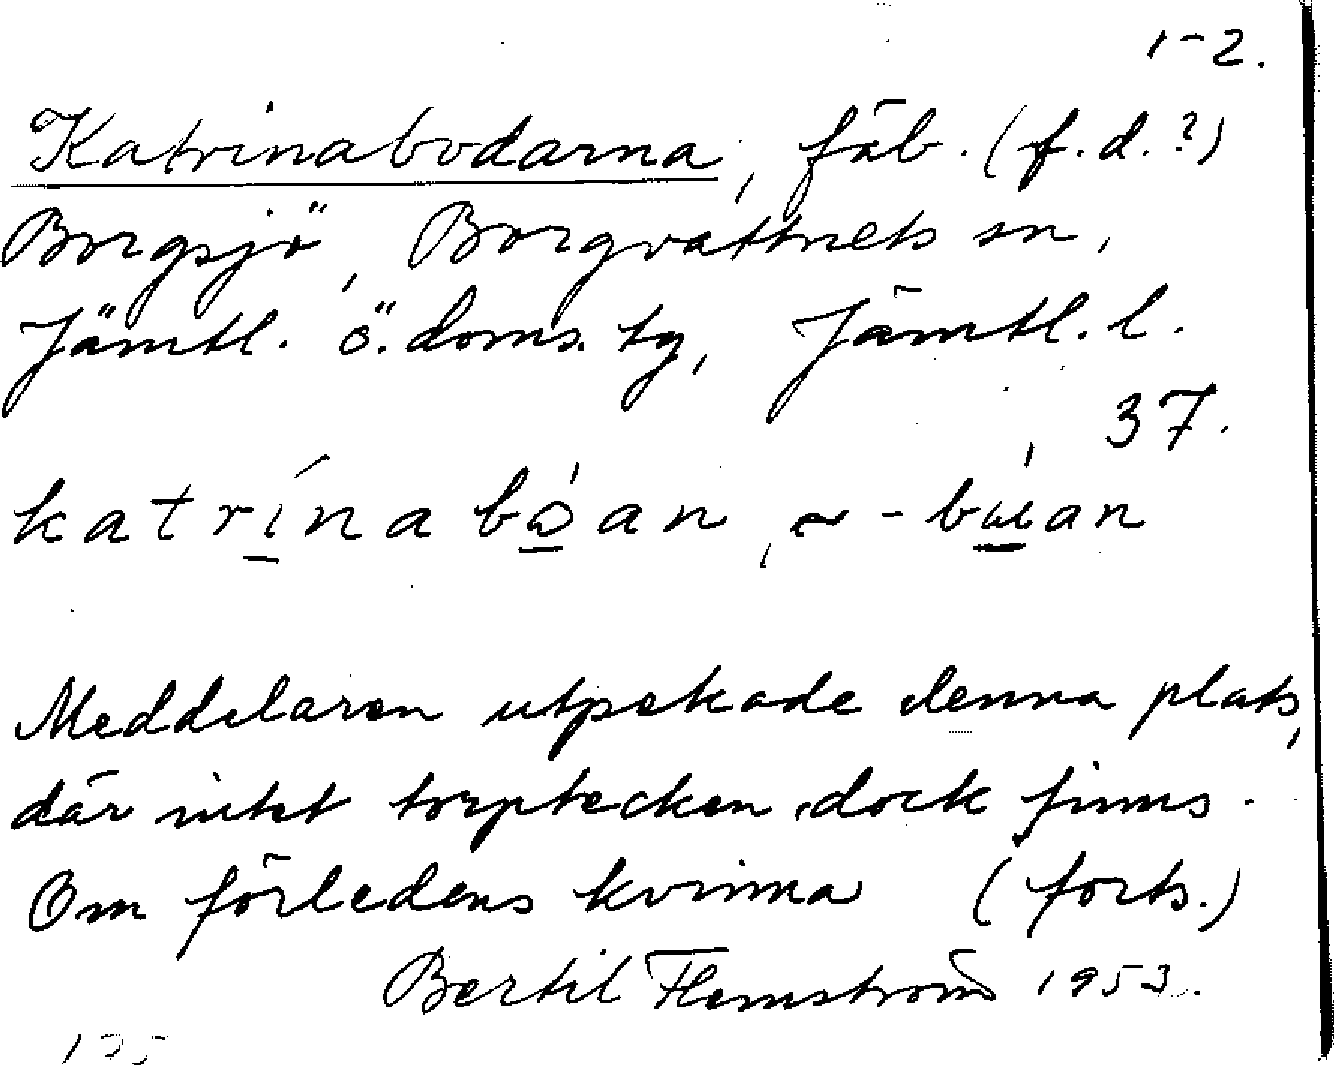 1-2.
Katrinabodarna, fäb. (f.d.?)
Borgsjö, Borgvattnets sn,
Jämtl. ö. doms. tg, Jämtl. l.
37.
katrínabòan, ~ -bùan
Meddelaren utpekade denna plats,
där intet torptecken dock finns.
Om förledens kvinna (forts.)
Bertil Flemström 1953.